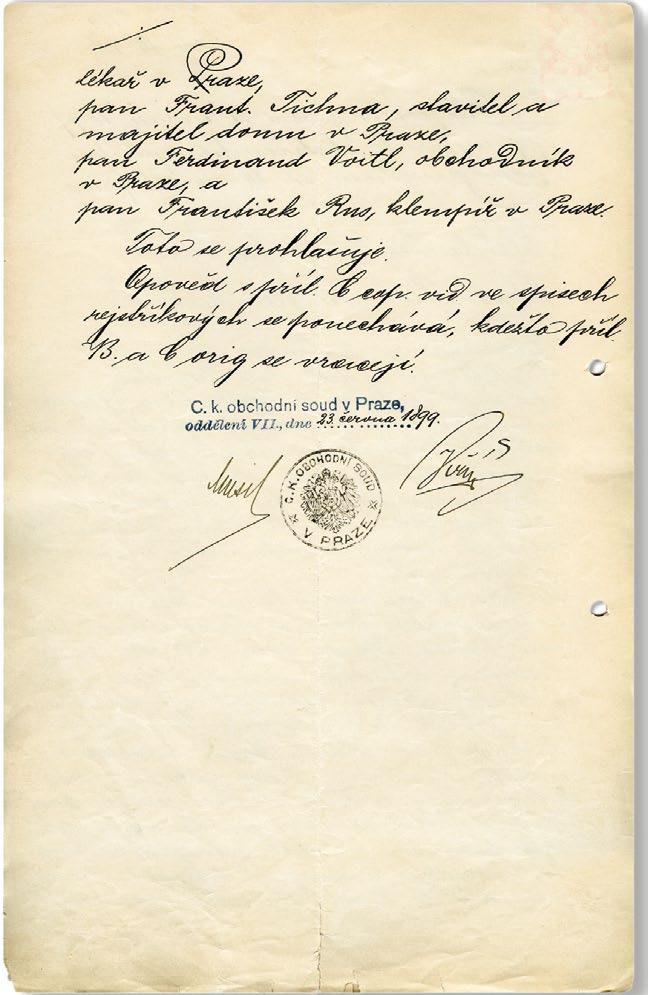 lékař v Praze,
pan Frant. Tichna, stavitel a
majitel domu v Praze,
pan Ferdinand Voitl, obchodník
v Praze, a
pan František Rus, klempíř v Praze.
Toto se prohlašuje.
Opověd s příl. C cop. vid ve spisech
rejstříkových se ponechává, kdežto příl.
B. a C orig se vracejí.
C. k. obchodní soud v Praze,
oddělení VII., dne 23. června 1899.
C. K. OBCHODNÍ SOUD
V PRAZE